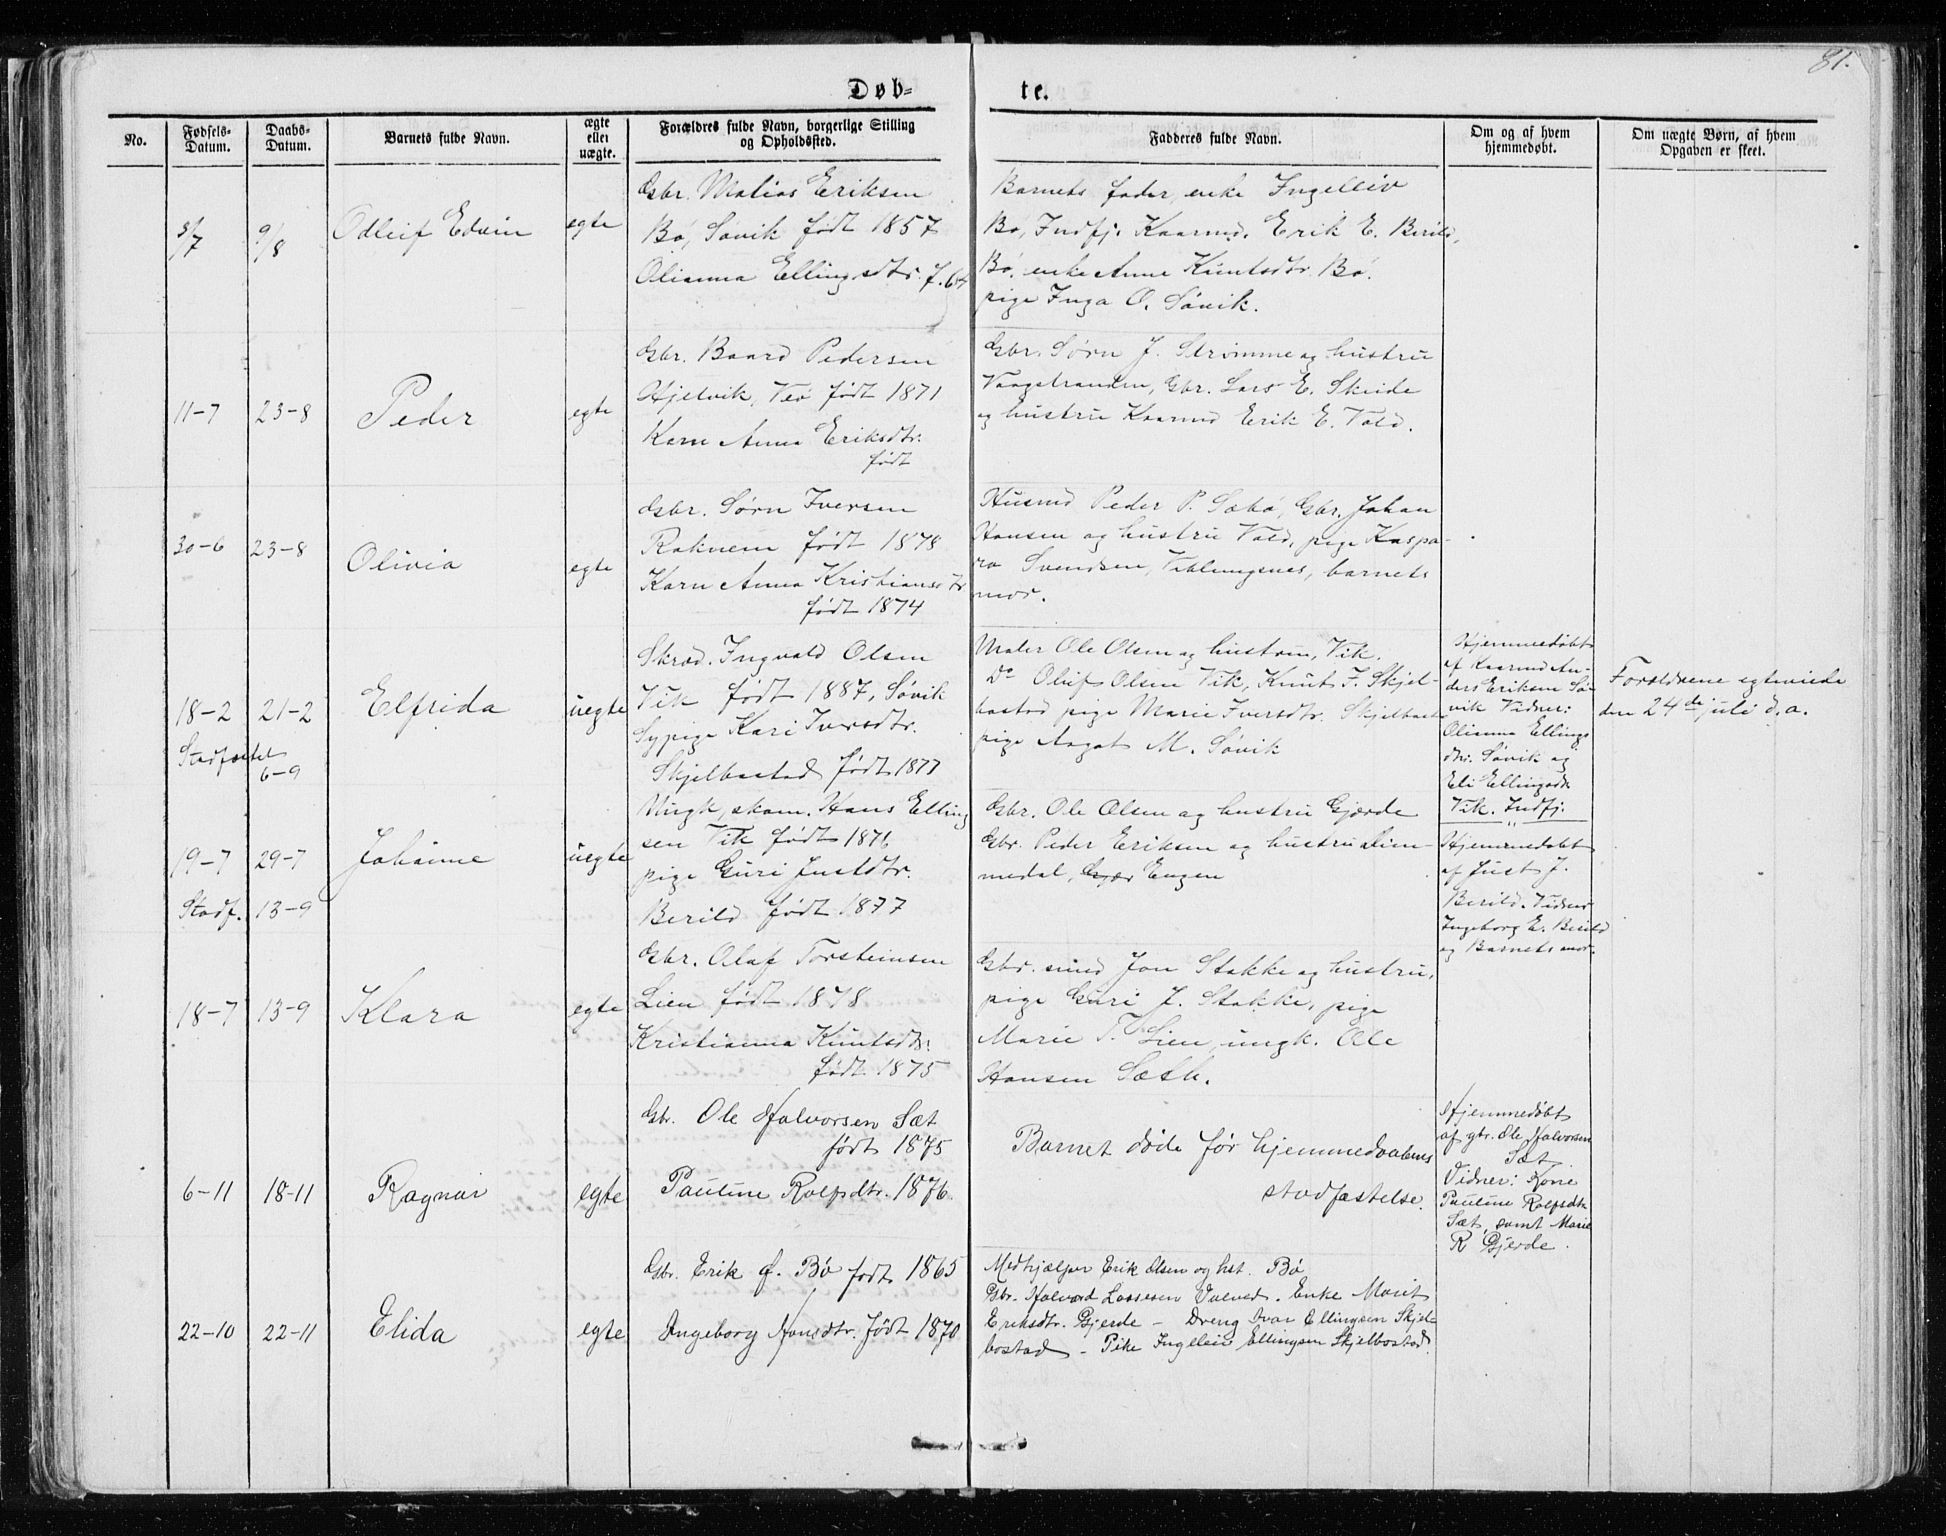 81.
Døb-
te.
No.
Fødsels-
Datum.
Daabs-
Datum.
Barnets fulde Navn.
ægte
eller
uægte.
Forældres fulde Navn, borgerlige Stilling
og Opholdssted.
Fadderes fulde Navn.
Om og af hvem
hjemmedøbt.
Om uægte Børn, af hvem
Opgaven er skeet.
9/8
Odleif Edvin
egte
Gbr. Matias Eriksen
Bø, Søvik født 1857
Olianna Ellingsdtr. f. 64
Barnets fader, enke Ingeleiv
Bø, Indfj. Kaarmd. Erik E. Berild,
Bø, enke Anne Knutsdtr. Bø.
pige Inga O. Søvik.
11-7
23-8
Peder
egte
Gbr. Baard Pedersen
Hjelvik, Veø født 1871
Karn Anna Eriksdtr.
født
Gbr. Sørn J. Strømme og hustru
Vaagstranden, Gbr. Lars E. Skeide
og hustru Kaarmd Erik E. Vold.
30-6
23-8
Olivia
egte
Gbr. Sørn Iversen
Roknem født 1878
Karn Anna Kristiansdtr
født 1874
Husmd Peder P. Sæbø, Gbr. Johan
Hansen og hustru Vold, pige Kaspa-
ra Svendsen, Veblungsnes, barnets
mor.
18-2
21-2
Stadfæstet
6-9
Elfrida
uegte
Skræd. Ingvald Olsen
Vik født 1887, Søvik
Sypige Kari Iversdtr.
Skjelbostad født 1877
Maler Ole Olsen og hustru, Vik.
Do Oluf Olsen Vik, Knut I. Skjel-
bostad pige Marie Iversdtr. Skjelbost
pige Aagot M. Søvik
Hjemmedøbt
af Kaarmd An-
ders Eriksen Sø-
vik Vidner:
Olianna Ellings
dtr. Søvik og
Eli Ellingsdtr
Vik. Indfj.
Forældrene egteviede
den 24de juli d.a.
19-7
29-7
Stadf.
13-9
Johanne
uegte
Ungk, skom. Hans Elling
sen Vik født 1876
pige Guri Justdtr.
Berild født 1877
Gbr. Ole Olsen og hustru Gjærde
Gbr. Peder Eriksen og hustru Dem-
medal, Gjær Engen
Hjemmedøbt
af Just J.
Berild. Vidner
Ingeborg E. Berild
og Barnets mor.
18-7
13-9
Klara
egte
Gbr. Olaf Torsteinsen
Lien født 1878
Kristianna Knutsdtr.
født 1875
Gbr. smed Jon Stokke og hustru,
pige Guri J. Stokke, pige
Marie T. Lien, ungk. Ole
Hansen Sæth.
6-11
18-11
Ragnar
egte
Gbr. Ole Halvorsen Sæt
født 1875
Pauline Rolfsdtr. 1876.
Barnet døde før hjemmedaabens
stadfæstelse.
Hjemmedøbt
af gbr. Ole Halvorsen
Sæt.
Vidner: Kone
Pauline Rolfsdtr
Sæt, samt Marie
R Gjerde.
22-10
22-11
Elida
egte
Gbr. Erik O. Bø født 1865
Ingeborg Hansdtr. født 1870
Medhjælper Erik Olsen og hst. Bø
Gbr. Halvard Lassesen Enke Marit
Eriksdtr. Gjerde - Dreng Ivar Ellingsen Skjel-
bostad - Pike Ingeleiv Ellingsen Skjelbostad.